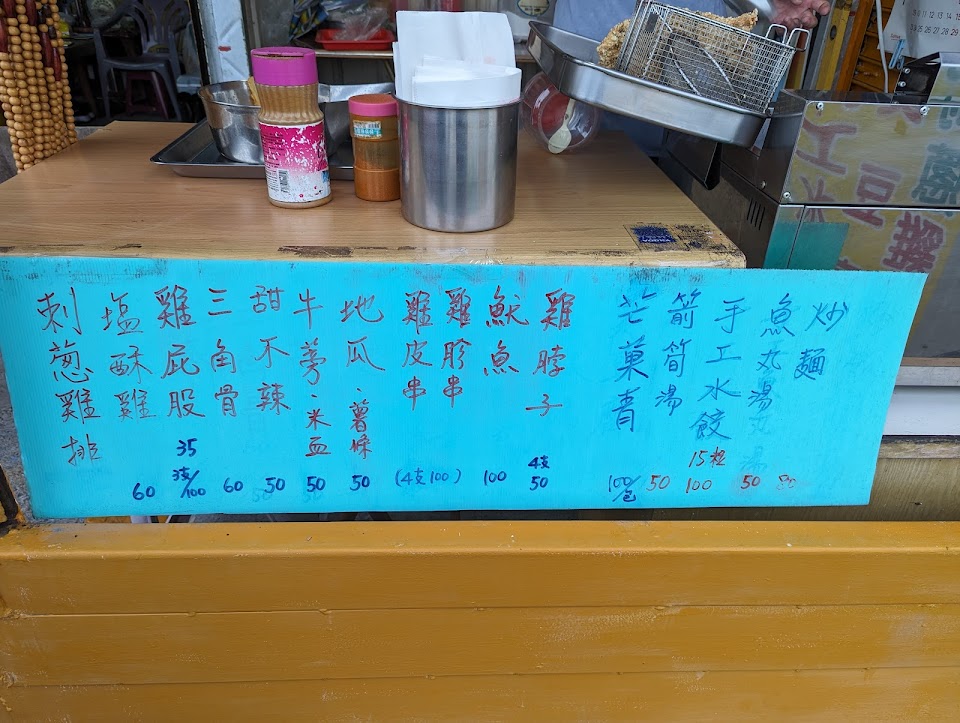 刺蔥雞排
塩酥雞 60
雞屁股 35 3支/100
三角骨 60
甜不辣 50
牛蒡·米血 50
地瓜·薯條 50
雞皮串
雞胗串
(4支100)
魷魚 100
雞脖子 4支 50
芒菓青 100/包
箭筍湯 50
手工水餃 15粒 100
魚丸湯 50
炒麵 80